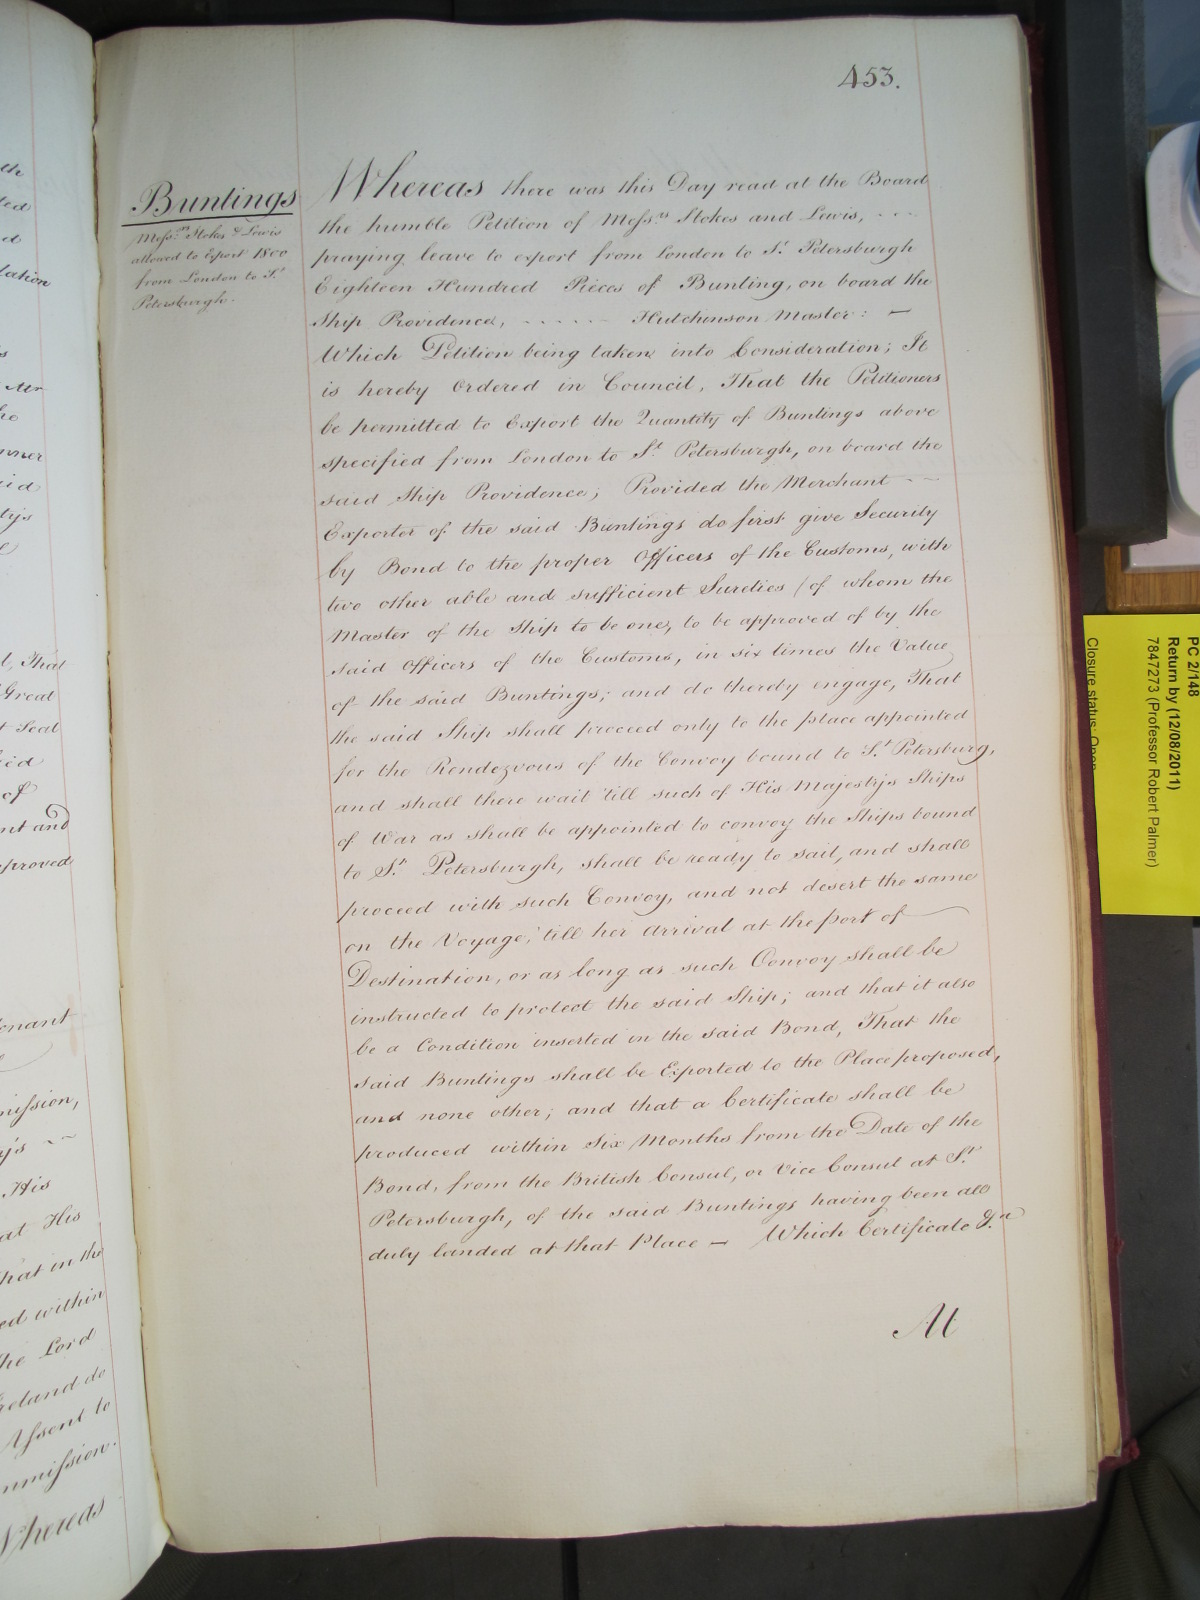 453.
Buntings
Mess.rs Stokes & Lewis
allowed to Export 1800
from London to S.t
Petersburgh.
Whereas there was this Day read at the Board
the humble Petition of Mess.rs Stokes and Lewis, - - -
praying leave to export from London to S.t Petersburgh
Eighteen Hundred Pieces of Bunting, on board the
Ship Providence, - - - - - - Hutchinson Master: —
Which Petition being taken into Consideration; It
is hereby Ordered in Council, That the Petitioners
be permitted to Export the Quantity of Buntings above
specified from London to S.t Petersburgh, on board the
said Ship Providence; Provided the Merchant - -
Exporter of the said Buntings do first give Security
by Bond to the proper Officers of the Customs, with
two other able and sufficient Sureties (of whom the
Master of the Ship to be one, to be approved of by the
said Officers of the Customs, in six times the Value
of the said Buntings; and do thereby engage, That
the said Ship shall proceed only to the place appointed
for the Rendezvous of the Convoy bound to S.t Petersburg,
and shall there wait 'till such of His Majesty's Ships
of War as shall be appointed to convoy the Ships bound
to S.t Petersburgh, shall be ready to sail, and shall
proceed with such Convoy, and not desert the same
on the Voyage, 'till her Arrival at the port of
Destination, or as long as such Convoy shall be
instructed to protect the said Ship; and that it also
be a Condition inserted in the said Bond, That the
said Buntings shall be Exported to the Place proposed,
and none other; and that a Certificate shall be
produced within Six Months from the Date of the
Bond, from the British Consul, or Vice Consul at S.t
Petersburgh, of the said Buntings having been all
duly landed at that Place — Which Certificate &.a
At
PC 2/148
Return by (12/08/2011)
7847273 (Professor Robert Palmer)
Closure status: Open
tation
nner
tys
, That
Great
Seal
of
nt and
pproved
nant
mission,
y's ~~
His
at His
that in the
ed within
the Lord
reland do
Assent to
mmission.
Whereas